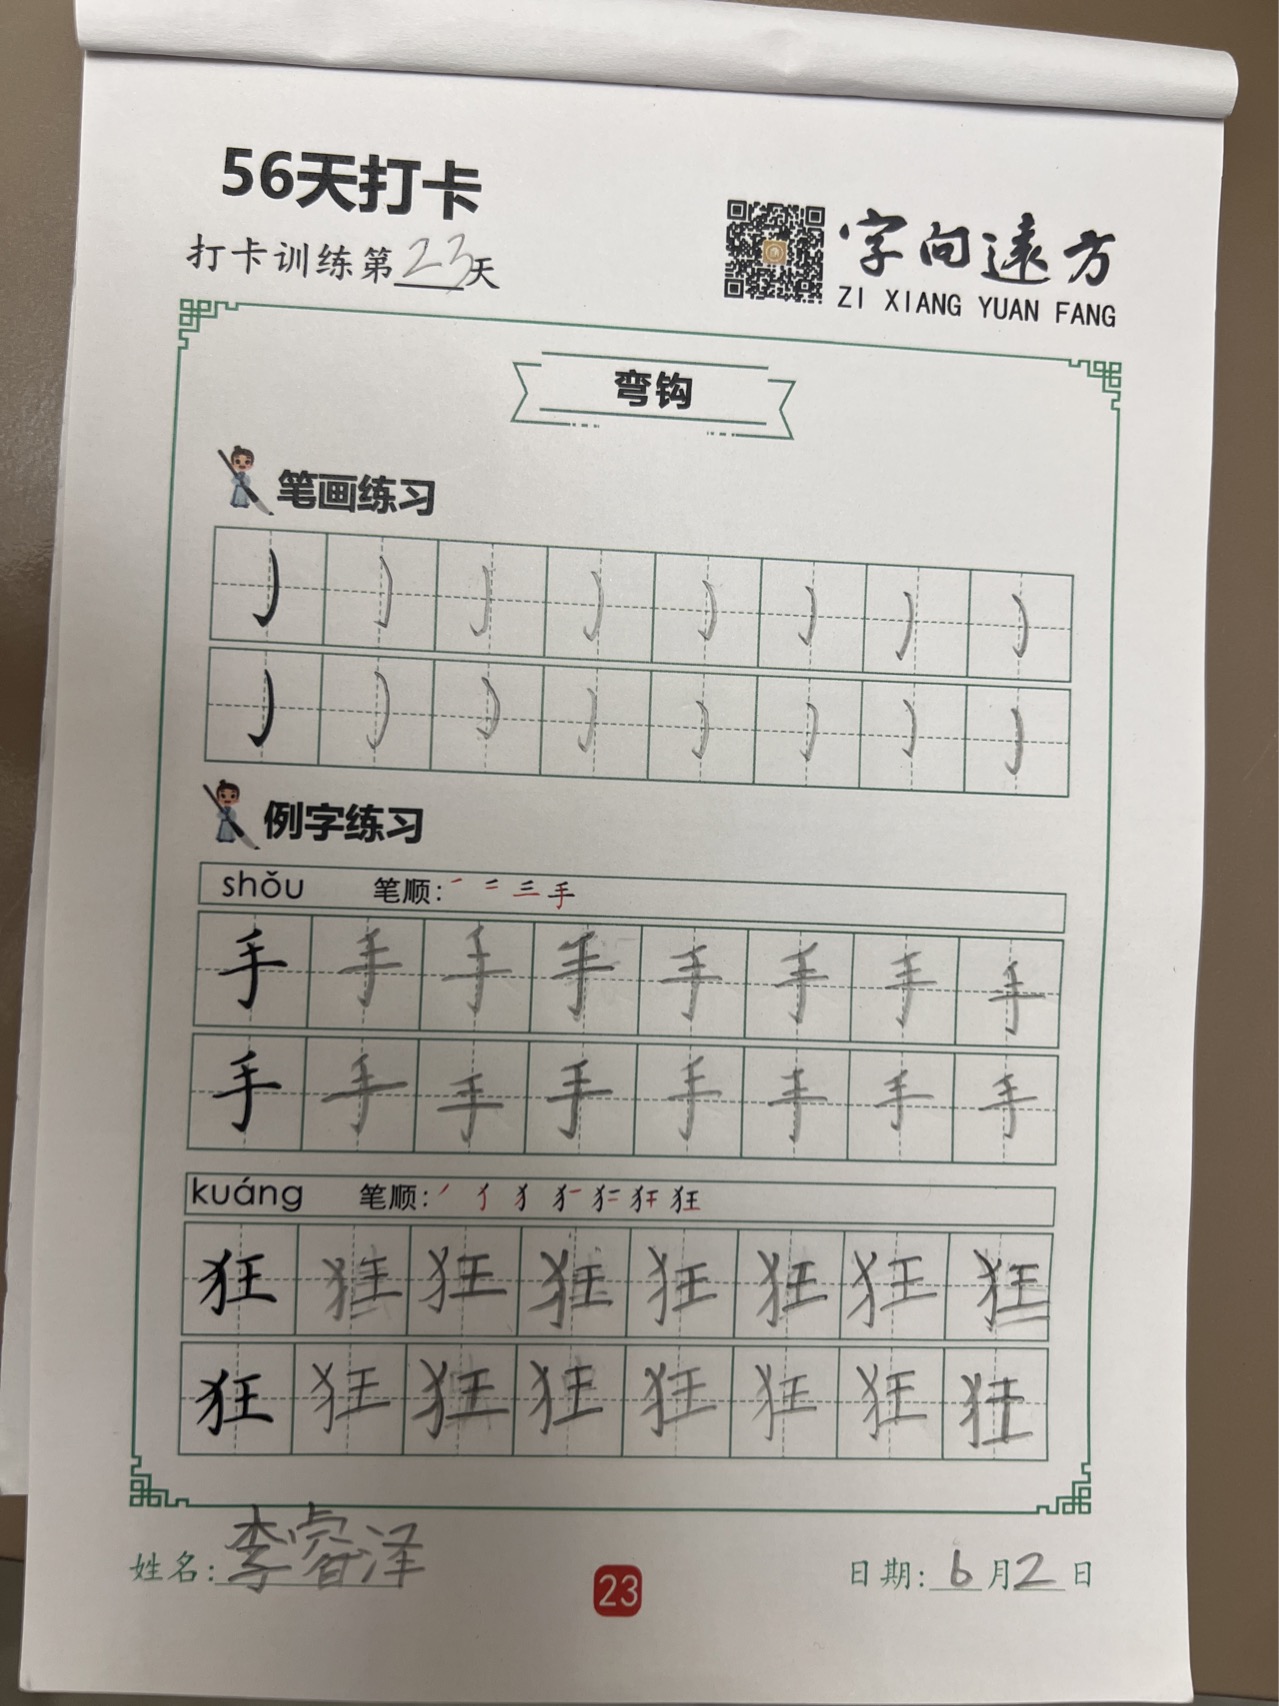 56天打卡
打卡训练第23天
字向远方
ZI XIANG YUAN FANG
弯钩
笔画练习
例字练习
shǒu 笔顺: 一 二 三 手
手 手 手 手 手 手 手 手
手 手 手 手 手 手 手 手
kuáng 笔顺:
狂 狂 狂 狂 狂 狂 狂 狂
狂 狂 狂 狂 狂 狂 狂 狂
姓名: 李睿泽
23
日期: 6月2日